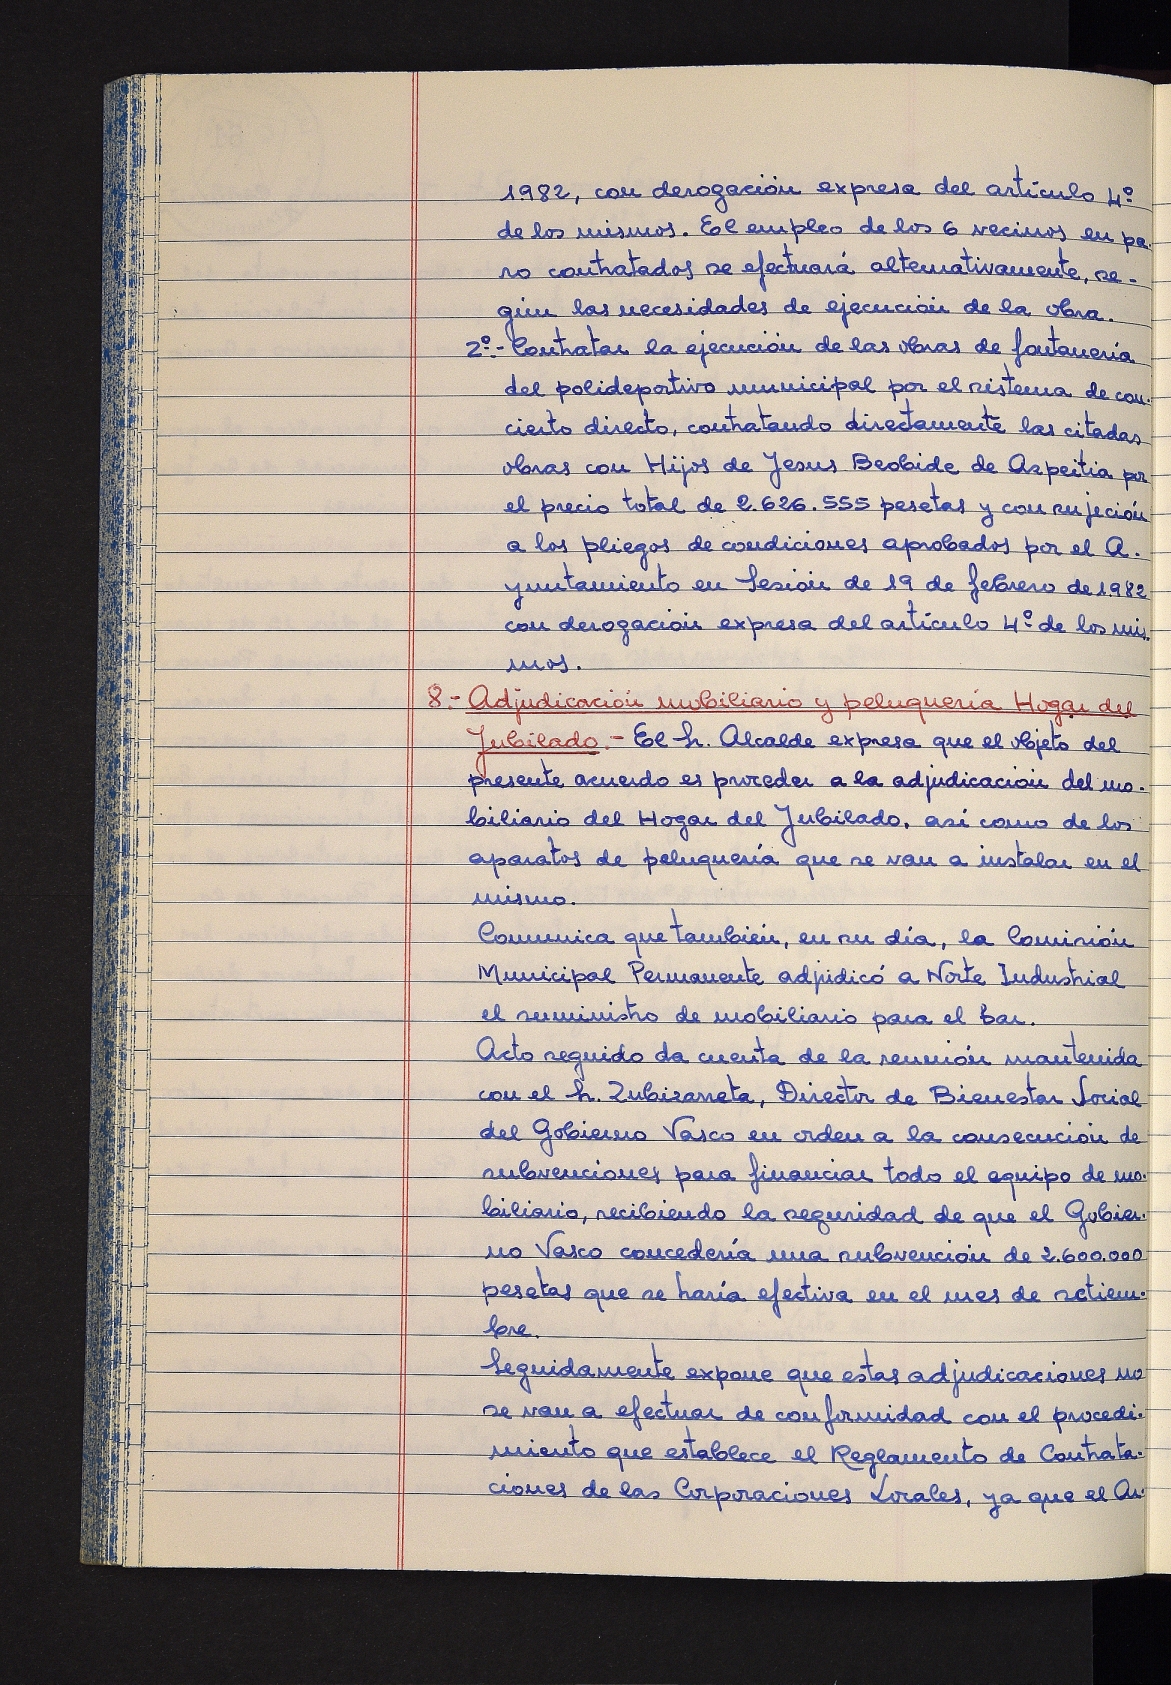 1.982, con derogación expresa del artículo 4º
de los mismos. El empleo de los 6 vecinos en pa-
ro contratados se efectuará alternativamente, se-
gún las necesidades de ejecución de la obra.
2º.- Contratar la ejecución de las obras de fontanería
del polideportivo municipal por el sistema de con-
cierto directo, contratando directamente las citadas
obras con Hijos de Jesus Beobide de Azpeitia por
el precio total de 2.626.555 pesetas y con sujeción
a los pliegos de condiciones aprobados por el A-
yuntamiento en Sesión de 19 de febrero de 1.982
con derogación expresa del artículo 4º de los mis-
mos.
8.- Adjudicación mobiliario y peluquería Hogar del
Jubilado.- El Sr. Alcalde expresa que el objeto del
presente acuerdo es proceder a la adjudicación del mo-
biliario del Hogar del Jubilado, así como de los
aparatos de peluquería que se van a instalar en el
mismo.
Comunica que también, en su día, la Comisión
Municipal Permanente adjudicó a Norte Industrial
el suministro de mobiliario para el bar.
Acto seguido da cuenta de la reunión mantenida
con el Sr. Zubizarreta, Director de Bienestar Social
del Gobierno Vasco en orden a la consecución de
subvenciones para financiar todo el equipo de mo-
biliario, recibiendo la seguridad de que el Gobier-
no Vasco concedería una subvención de 2.600.000
pesetas que se haría efectiva en el mes de setiem-
bre.
Seguidamente expone que estas adjudicaciones no
se van a efectuar de conformidad con el procedi-
miento que establece el Reglamento de Contrata-
ciones de las Corporaciones Locales, ya que el Ar-